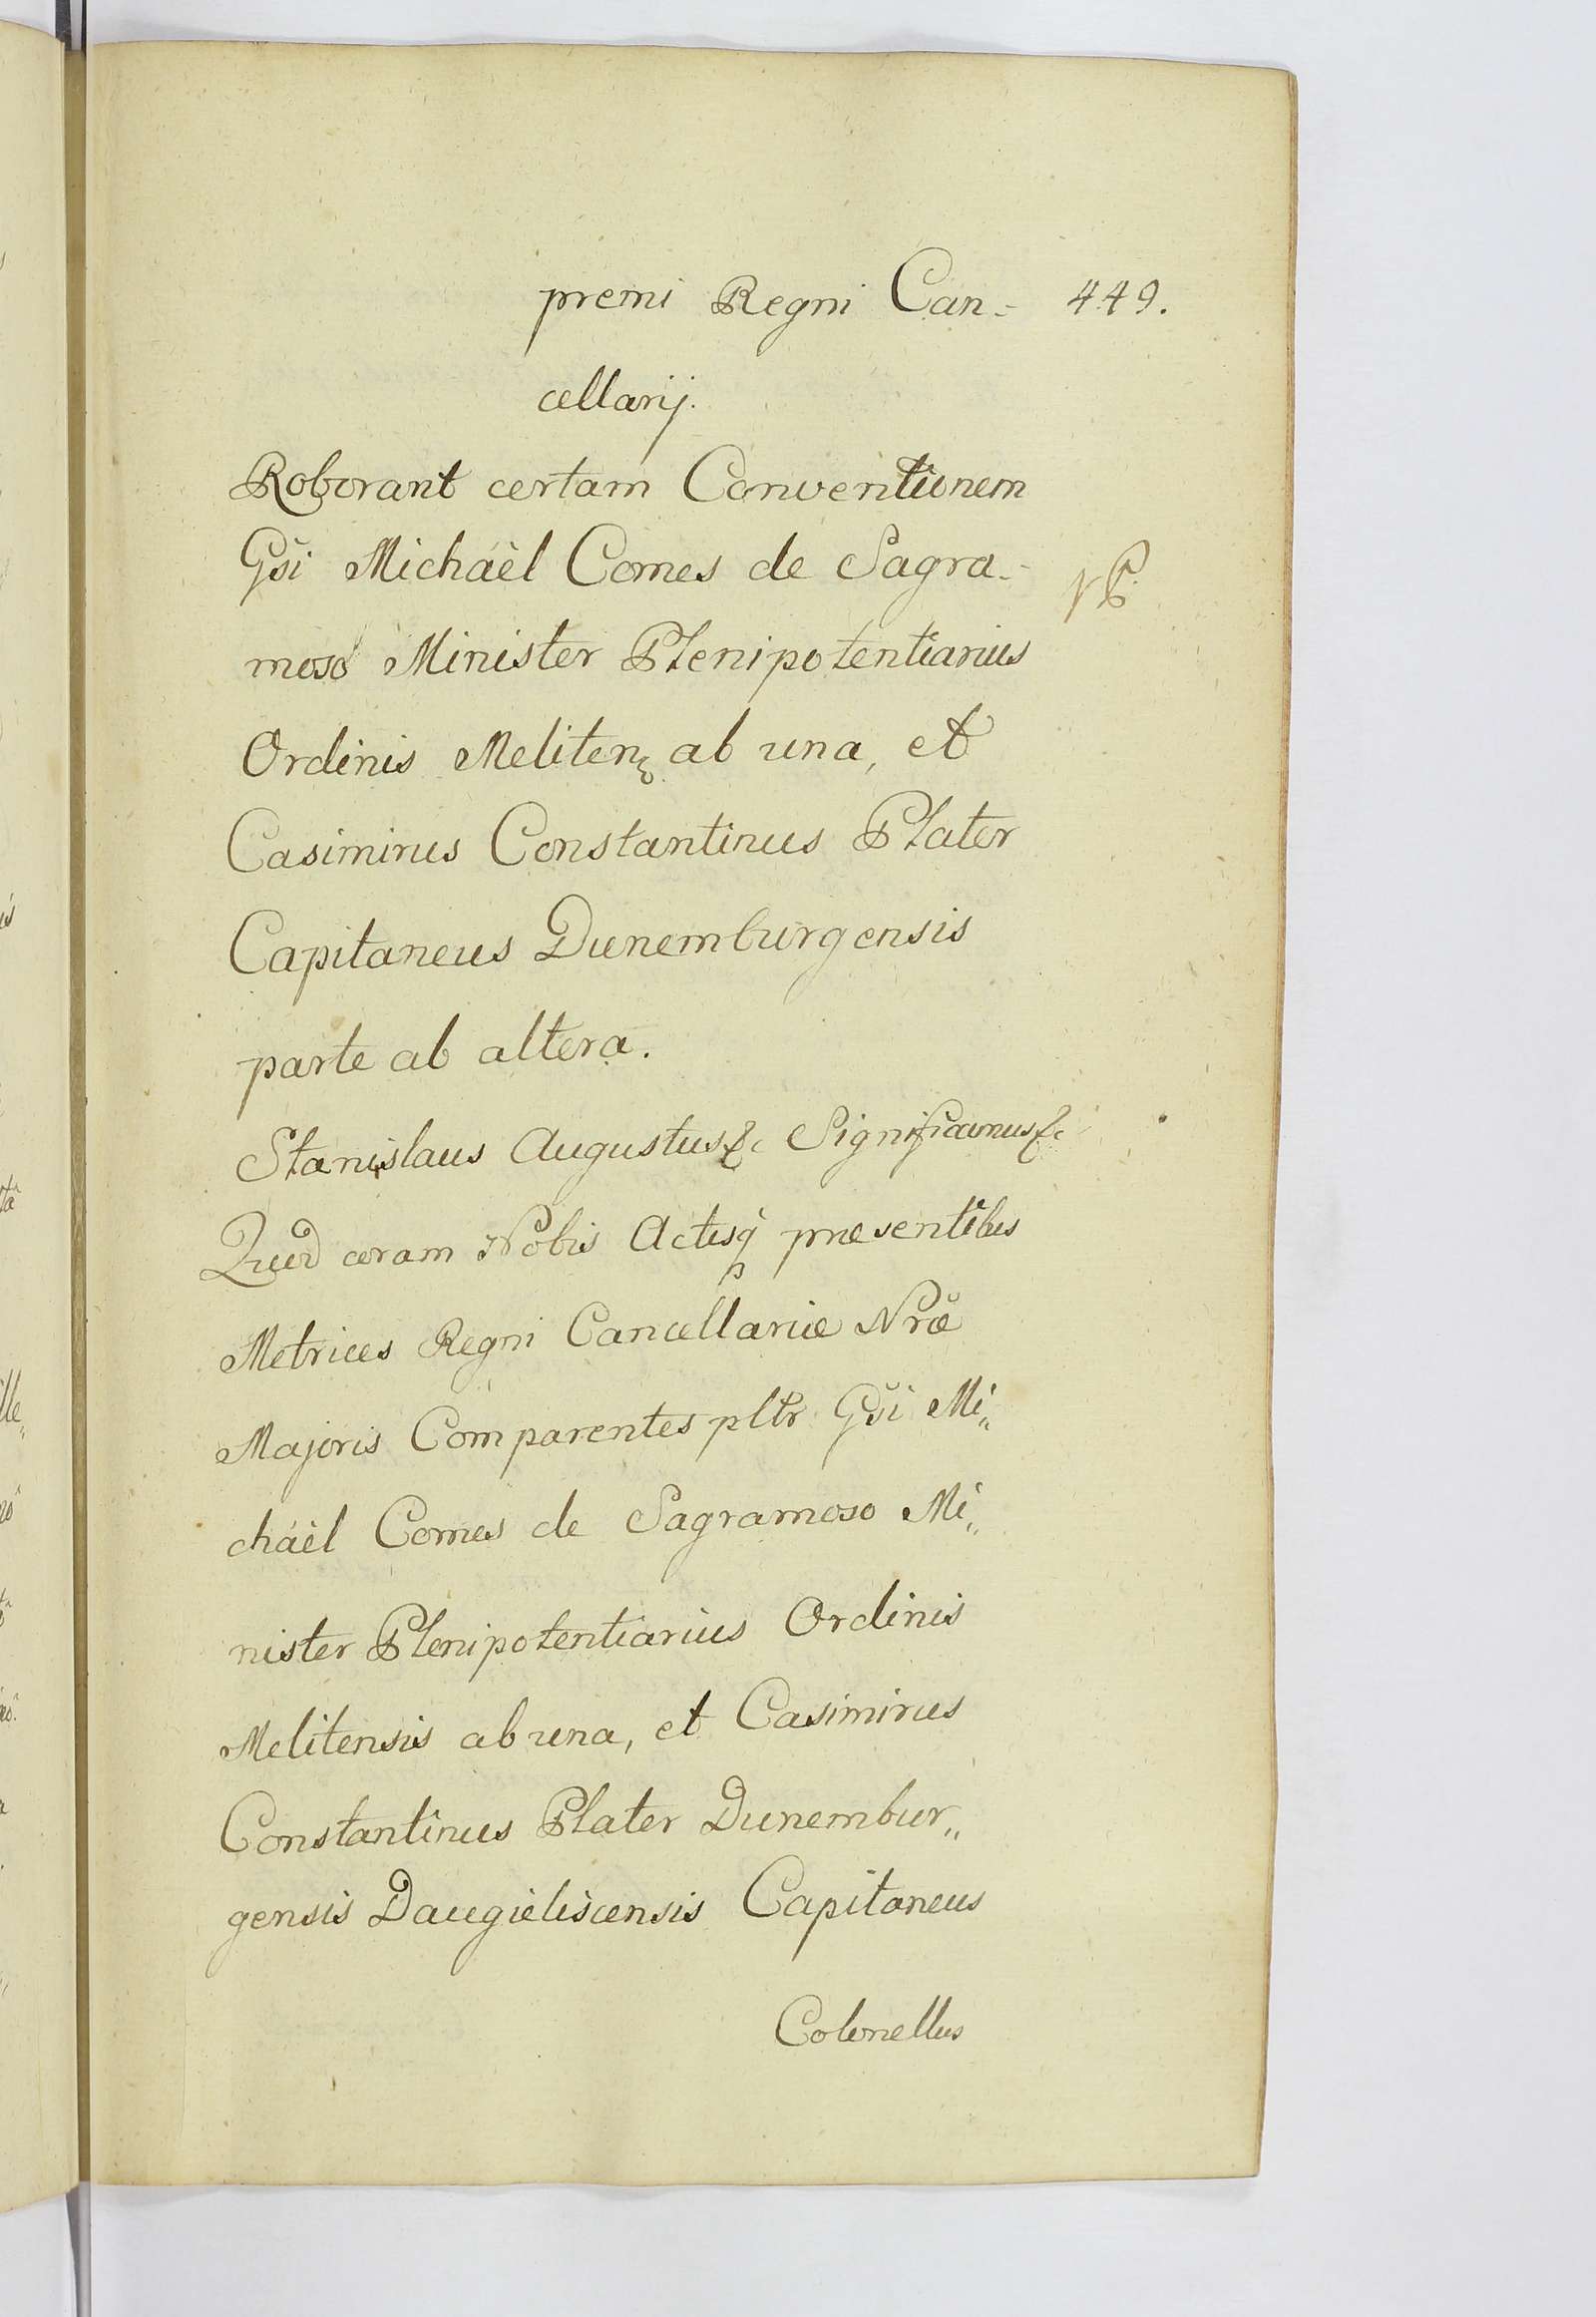 premi Regni Can= 449.
cellarij.
Roborant certam Conventionem
Gsi Michäel Comes de Sagra=
moso Minister Plenipotentiarius
Ordinis Meliten. ab una, et
Casimirus Constantinus Plater
Capitaneus Dunemburgensis
parte ab altera.
Stanislaus Augustus &c Significamus &c
Quod coram Nobis Actisq præsentibus
Metrices Regni Cancellariæ Nræ
Majoris Comparentes pltr Gsi Mi„
chäel Comes de Sagramoso Mi„
nister Plenipotentiarius Ordinis
Melitensis ab una, et Casimirus
Constantinus Plater Dunembur„
gensis Daugieliscensis Capitaneus
Colonellus